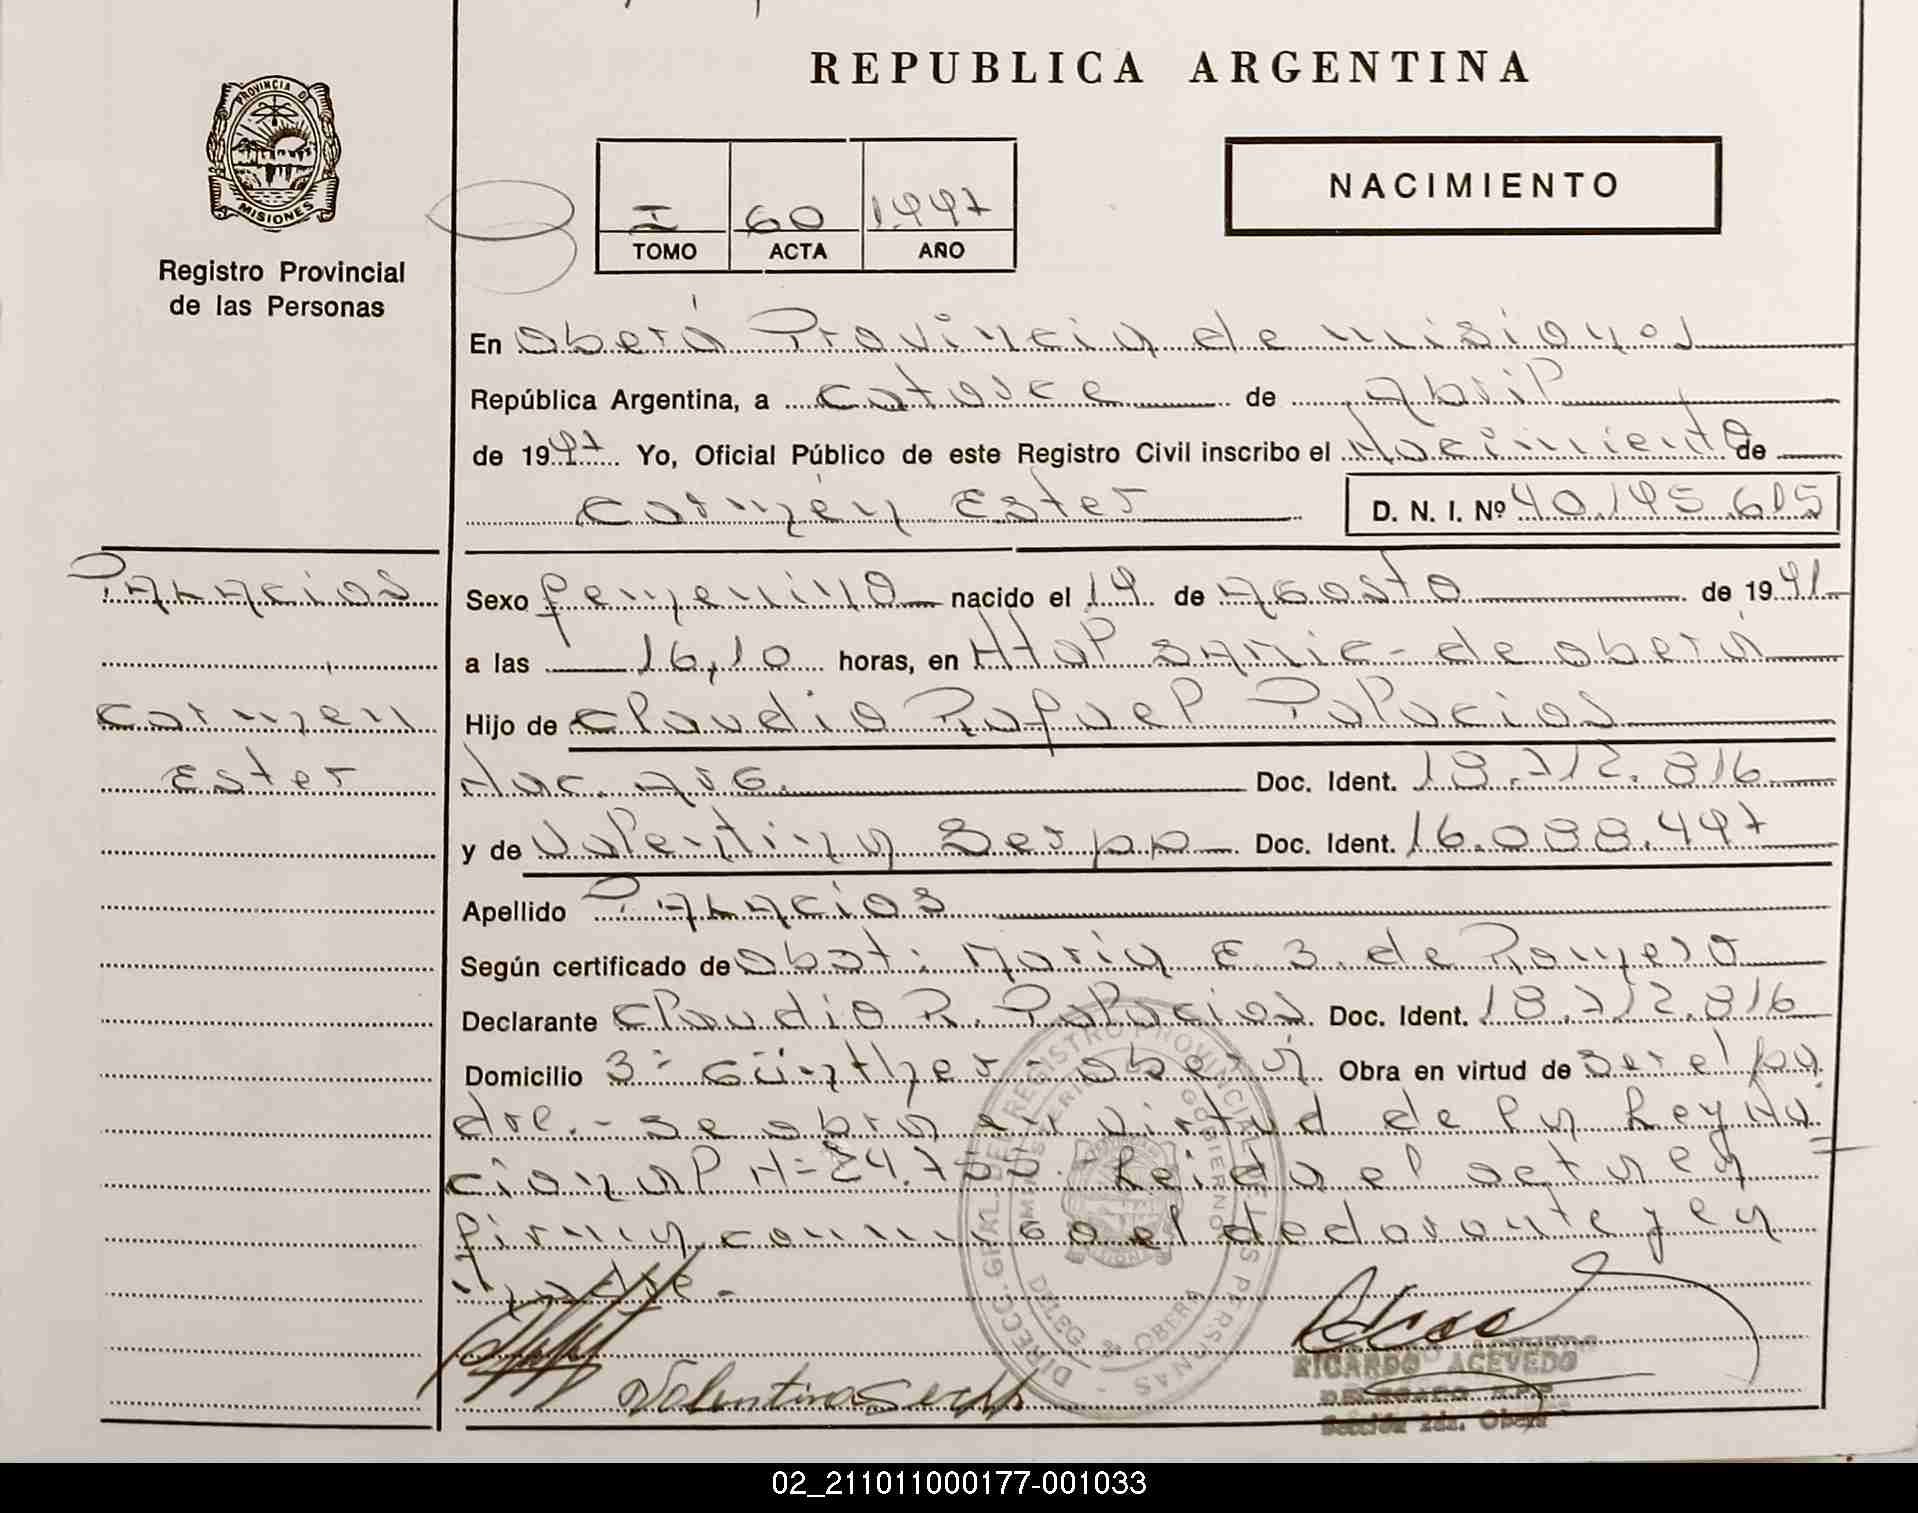 REPUBLICA ARGENTINA
PROVINCIA DE
MISIONES
Registro Provincial
de las Personas
I 60 1997
TOMO ACTA AÑO
NACIMIENTO
En Oberá Provincia de Misiones
República Argentina, a catorce de Abril
de 1997 Yo, Oficial Público de este Registro Civil inscribo el Nacimiento de
Carmen Ester D. N. I. Nº 40.195.615
PALACIOS
Carmen
Ester
Sexo femenino nacido el 19 de Agosto de 1991
a las 16,10 horas, en Htal SAMIC - de Oberá
Hijo de Claudio Rafael Palacios
Nac. Arg. Doc. Ident. 18.712.816
y de Valentina Serpp Doc. Ident. 16.088.497
Apellido PALACIOS
Según certificado de Obst: Maria E. B. de Romero
Declarante Claudio R. Palacios Doc. Ident. 18.712.816
Domicilio Bº Günther - Oberá Obra en virtud de ser el pa
dre.- Se obra en virtud de la Ley Na
cional Nº 24.755.- Leida el acta
firman conmigo el declarante y
madre.-
DIRECC. GRAL. DEL REGISTRO PROVINCIAL DE LAS PERSONAS
GOBIERNO
DELEG. OBERA
Valentina Serpp
RICARDO ACEVEDO
DELEGADO R.P.P.
Sección 2da. Oberá
02_211011000177-001033